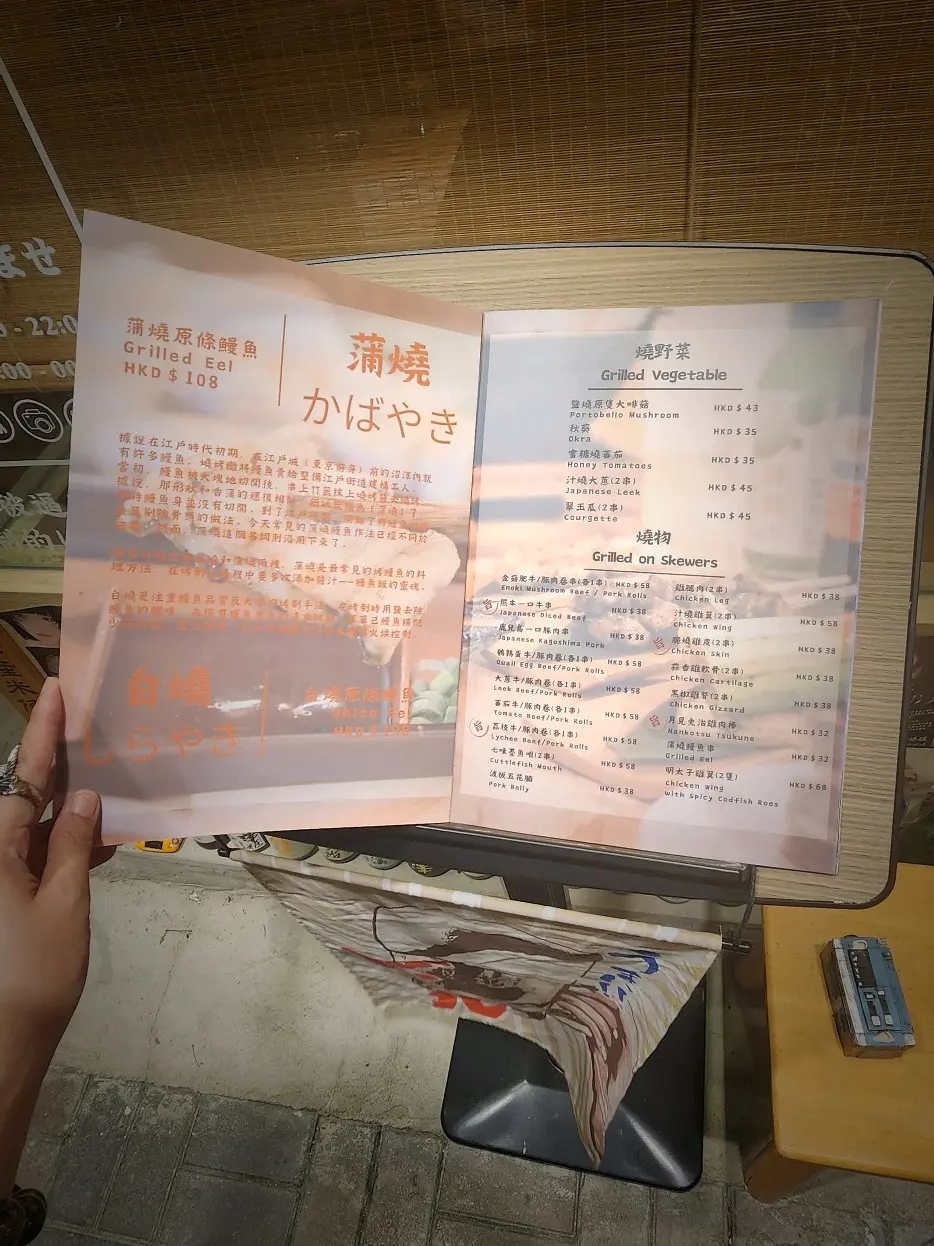 ませ
- 22:0
:00 - 00
蒲燒原條鰻魚
Grilled Eel
HKD $ 108
蒲燒
かばやき
據說在江戶時代初期,在江戶城(東京前身)前的沼澤內就
有許多鰻魚。燒烤攤將鰻魚賣給整備江戶街道建構工人。
當初,鰻魚被大塊地切開後,串上竹籤抹上
據說,那形狀和香蒲的穗很相
的做法。今天常見的蒲燒鰻魚作法已經不同於
蒲燒這個名詞則沿用下來了。
和蒲燒兩種。蒲燒是最常見的烤鰻魚的料
理方法,在烤製過程中要多次添加醬汁——鰻魚飯的靈魂。
白燒更注重鰻魚品質及火
白燒
しらやき
原條鰻魚
White Eel
燒野菜
Grilled Vegetable
鹽燒原隻大啡菇 HKD $ 43
Portobello Mushroom
秋葵 HKD $ 35
Okra
蜜糖燒蕃茄 HKD $ 35
Honey Tomatoes
汁燒大蔥(2串) HKD $ 45
Japanese Leek
翠玉瓜(2串) HKD $ 45
Courgette
燒物
Grilled on Skewers
金菇肥牛/豚肉卷串(各1串) HKD $ 58
Enoki Mushroom Beef / Pork Rolls
熊本一口牛串 HKD $ 38
Japanese Diced Beef
鹿兒島一口豚肉串 HKD $ 38
Japanese Kagoshima Pork
鵪鶉蛋牛/豚肉卷(各1串) HKD $ 58
Quail Egg Beef/Pork Rolls
大蔥牛/豚肉卷(各1串) HKD $ 58
Leek Beef/Pork Rolls
蕃茄牛/豚肉卷(各1串) HKD $ 58
Tomato Beef/Pork Rolls
荔枝牛/豚肉卷(各1串) HKD $ 58
Lychee Beef/Pork Rolls
七味墨魚咀(2串) HKD $ 58
Cuttlefish Mouth
波板五花腩 HKD $ 38
Pork Belly
雞腿肉(2串) HKD $ 38
Chicken Leg
汁燒雞翼(2串) HKD $ 58
chicken wing
脆燒雞皮(2串) HKD $ 38
Chicken Skin
蒜香雞軟骨(2串) HKD $ 38
Chicken Cartilage
黑椒雞腎(2串) HKD $ 38
Chicken Gizzard
月見免治雞肉棒 HKD $ 32
Nankotsu Tsukune
蒲燒鰻魚串 HKD $ 32
Grilled Eel
明太子雞翼(2隻) HKD $ 68
Chicken wing
with Spicy Codfish Roes